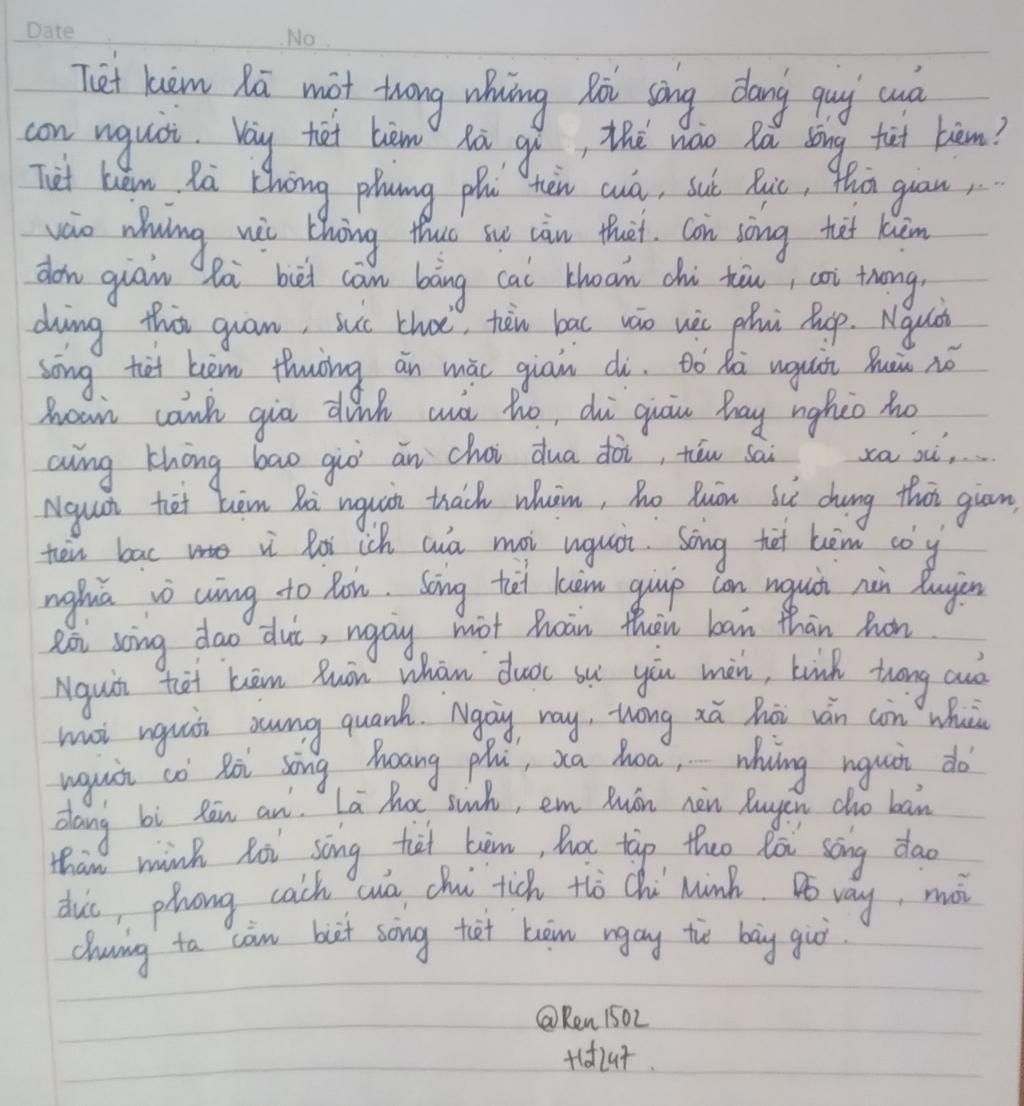 Date No
Tiết kiệm là một trong những lối sống đáng quý của
con người. Vậy tiết kiệm là gì, thế nào là sống tiết kiệm?
Tiết kiệm là không phung phí tiền của, sức lực, thời gian,...
vào những việc không thực sự cần thiết. Còn sống tiết kiệm
đơn giản là biết cân bằng các khoản chi tiêu, coi trọng,
dùng thời gian, sức khoẻ, tiền bạc vào việc phù hợp. Người
sống tiết kiệm thường ăn mặc giản dị. Đó là người hiểu rõ
hoàn cảnh gia đình của họ, dù giàu hay nghèo họ
cũng không bao giờ ăn chơi đua đòi, tiêu sài xa xỉ,...
Người tiết kiệm là người trách nhiệm, họ luôn sử dụng thời gian,
tiền bạc vì lợi ích của mọi người. Sống tiết kiệm có ý
nghĩa vô cùng to lớn. Sống tiết kiệm giúp con người rèn luyện
lối sống đạo đức, ngày một hoàn thiện bản thân hơn.
Người tiết kiệm luôn nhận được sự yêu mến, kính trọng của
mọi người xung quanh. Ngày nay, trong xã hội vẫn còn nhiều
người có lối sống hoang phí, xa hoa,... những người đó
đáng bị lên án. Là học sinh, em luôn rèn luyện cho bản
thân mình lối sống tiết kiệm, học tập theo lối sống đạo
đức, phong cách của chủ tịch Hồ Chí Minh. Do vậy, mỗi
chúng ta cần biết sống tiết kiệm ngay từ bây giờ.
@Ren1502